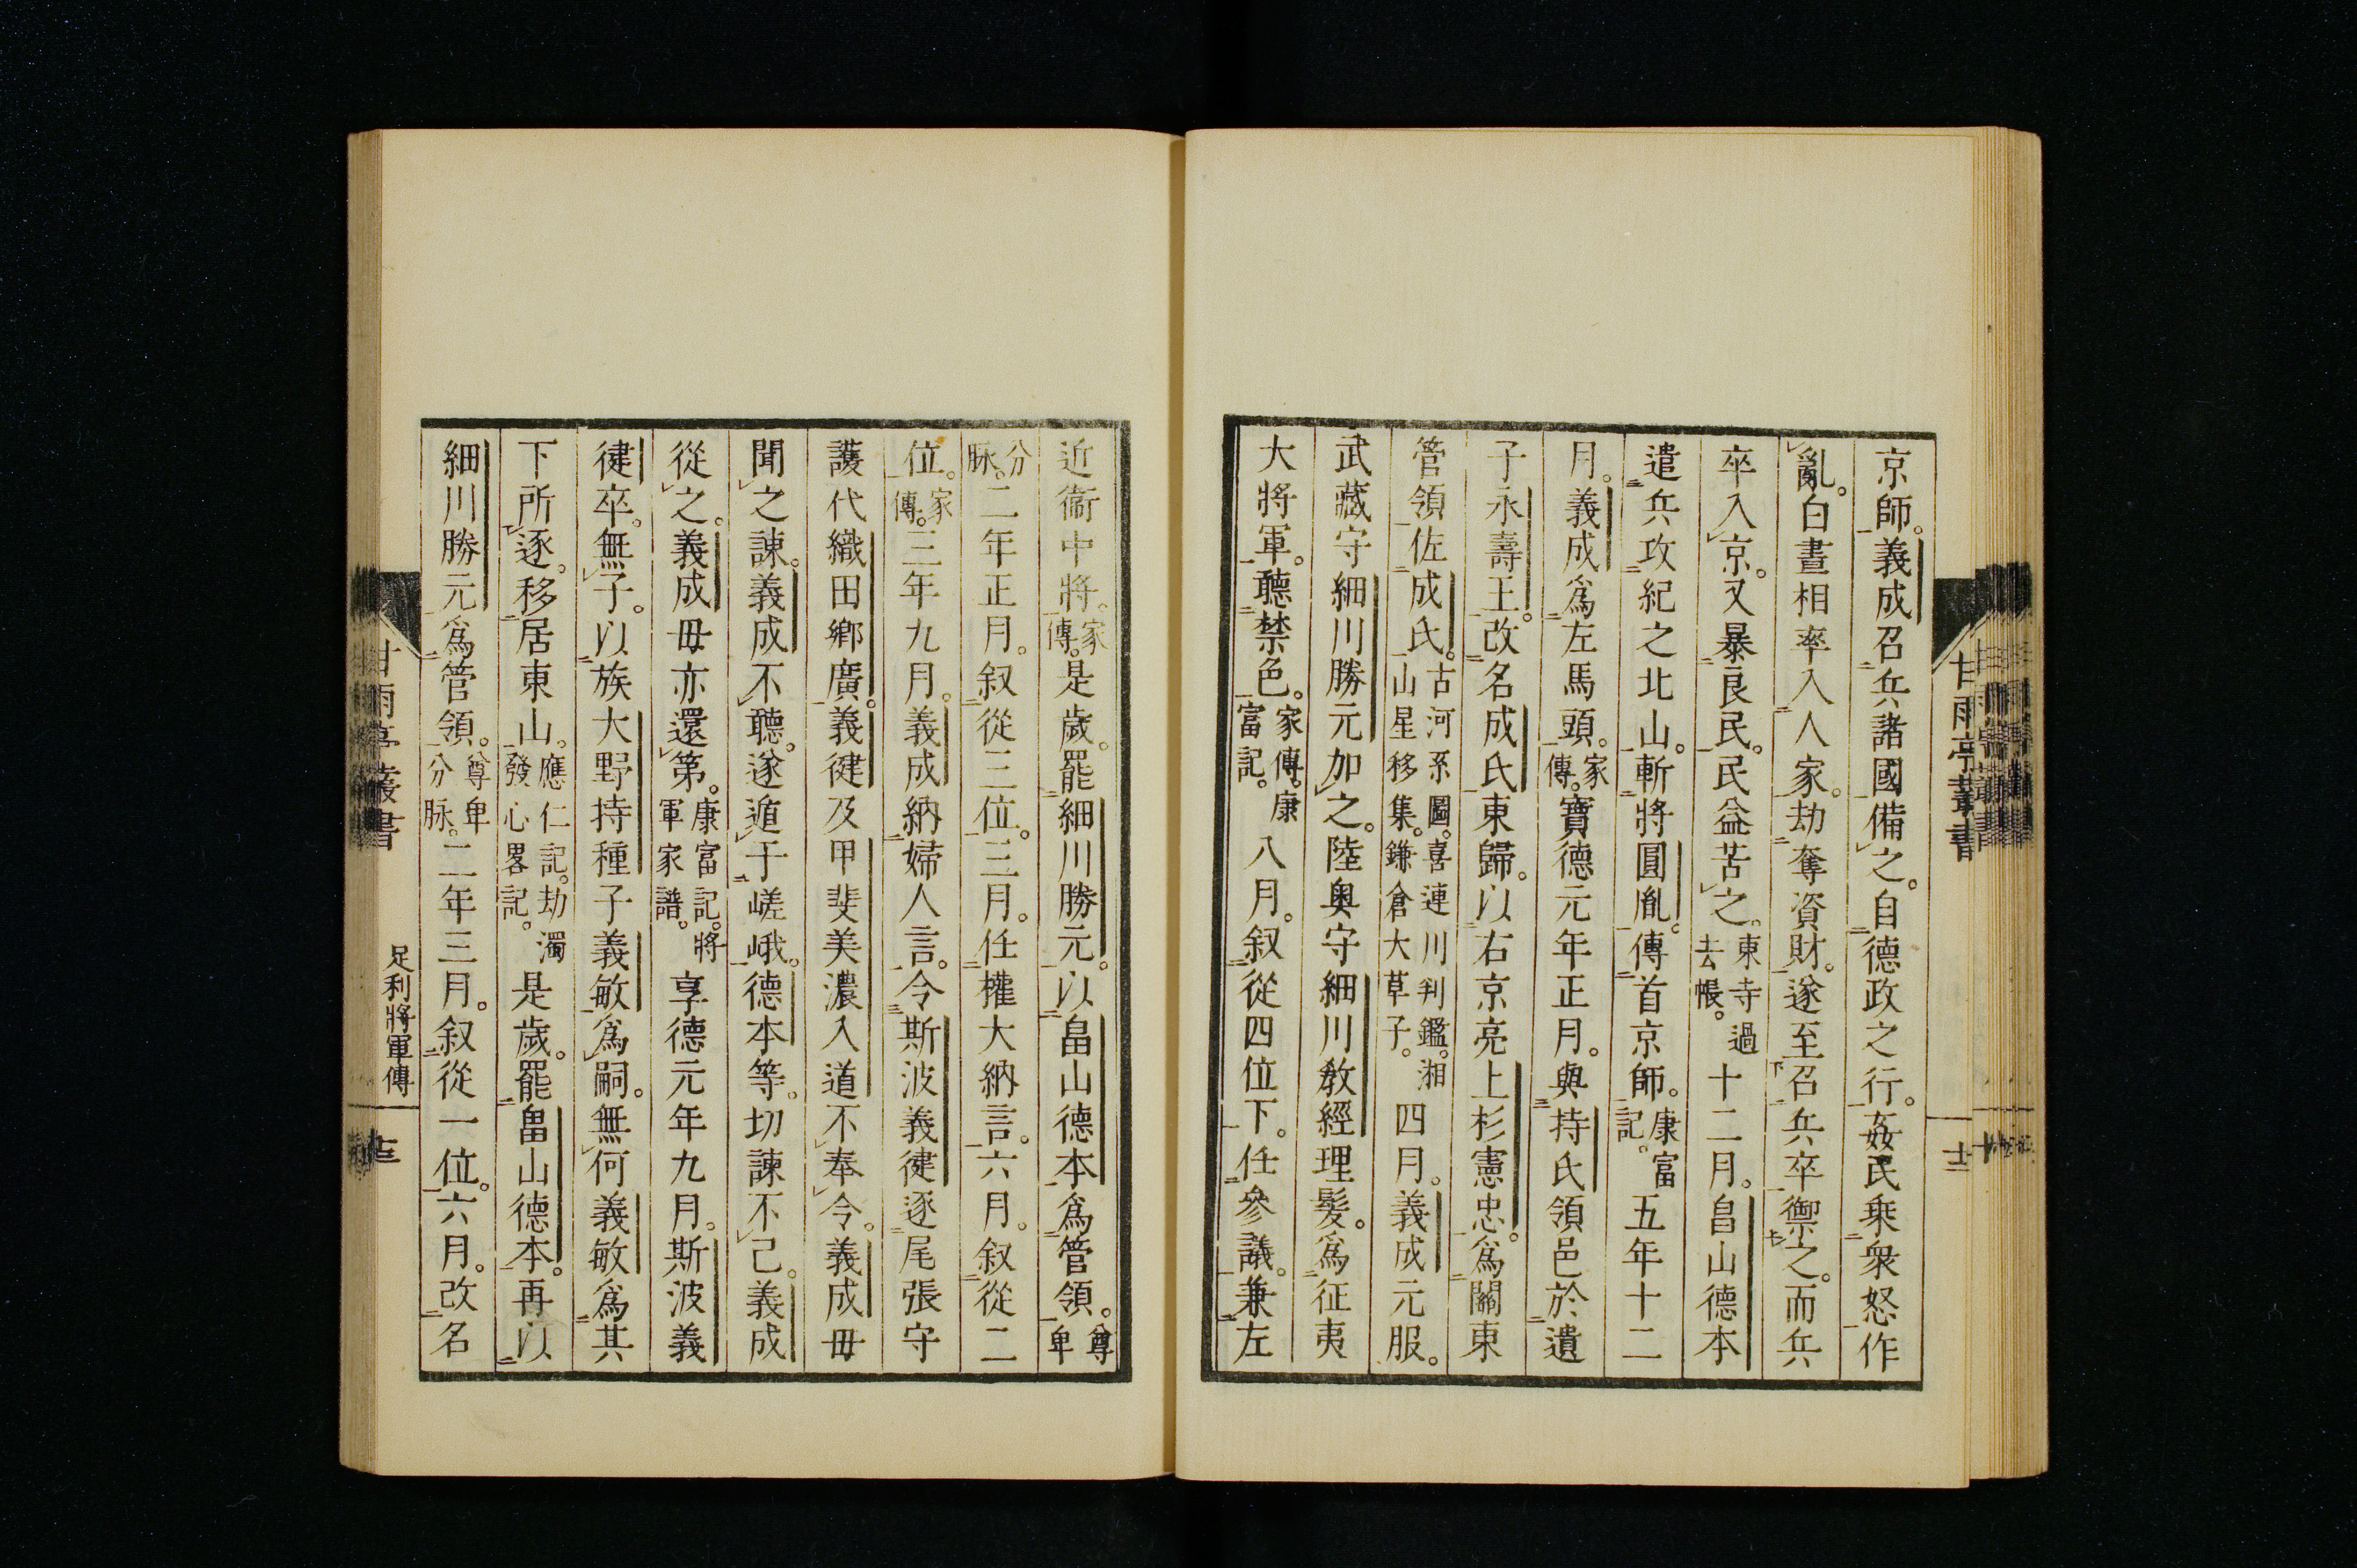 京師。義成召兵諸國備之。自德政之行。姦民乘衆怒作
亂。白晝相率入人家。劫奪資財。遂至召兵卒禦之。而兵
卒入京。又暴良民。民益苦之。東寺過去帳。十二月。畠山德本
遣兵攻紀之北山。斬將圓胤。傳首京師。康富記。五年十二
月。義成爲左馬頭。家傳。寶德元年正月。與持氏領邑於遺
子永壽王。改名成氏。東歸。以右京亮上杉憲忠。爲關東
管領佐成氏。古河系圖。喜連川判鑑。湘山星移集。鎌倉大草子。四月。義成元服。
武藏守細川勝元加之。陸奥守細川教經理髮。爲征夷
大將軍。聽禁色。家傳。康富記。八月。叙從四位下。任參議。兼左
甘雨亭叢書
十二
近衞中將。家傳。是歲。罷細川勝元。以畠山德本爲管領。尊卑
分脉。二年正月。叙從三位。三月。任權大納言。六月。叙從二
位。家傳。三年九月。義成納婦人言。令斯波義健逐尾張守
護代織田鄉廣。義健及甲斐美濃入道不奉令。義成毋
聞之諫。義成不聽。遂遁于嵯峨。德本等。切諫不已。義成
從之。義成毋亦還第。康富記。將軍家譜。享德元年九月。斯波義
健卒。無子。以族大野持種子義敏爲嗣。無何義敏爲其
下所逐。移居東山。應仁記。劫濁發心畧記。是歲。罷畠山德本。再以
細川勝元爲管領。尊卑分脉。二年三月。叙從一位。六月。改名
甘雨亭叢書
足利將軍傳
十三